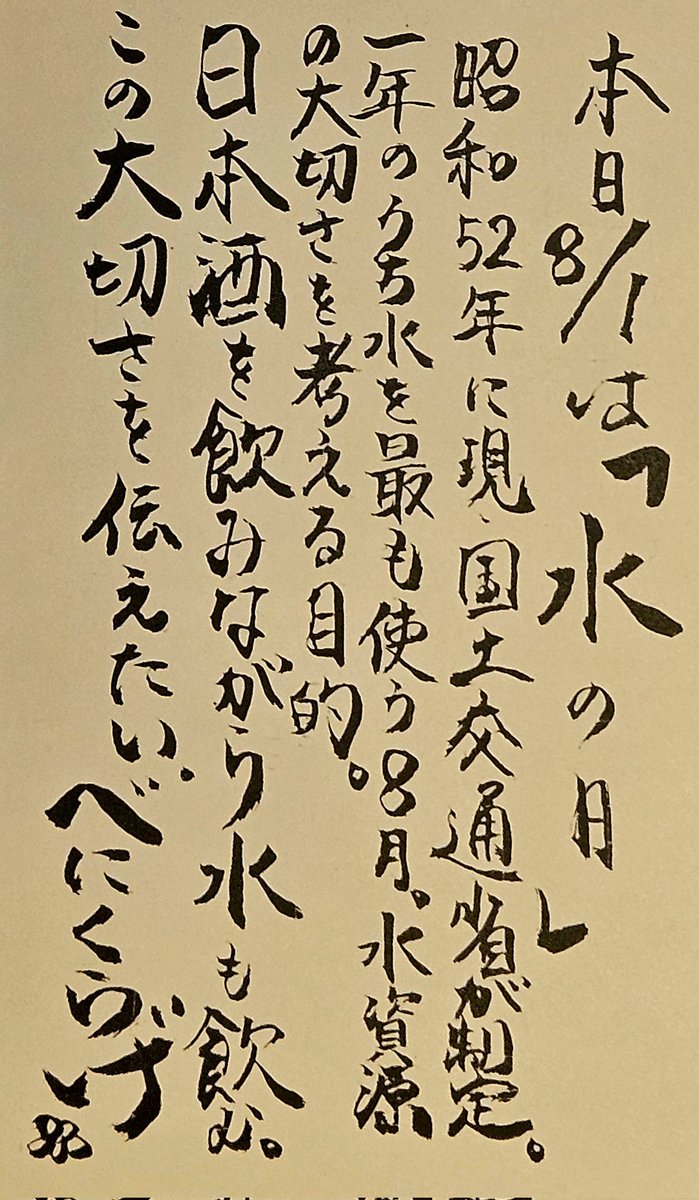 本日8/1は「水の日」
昭和52年に現、国土交通省が制定。
一年のうち水を最も使う8月、水資源
の大切さを考える目的。
日本酒を飲みながら水も飲む。
この大切さを伝えたい。
べにくらげ